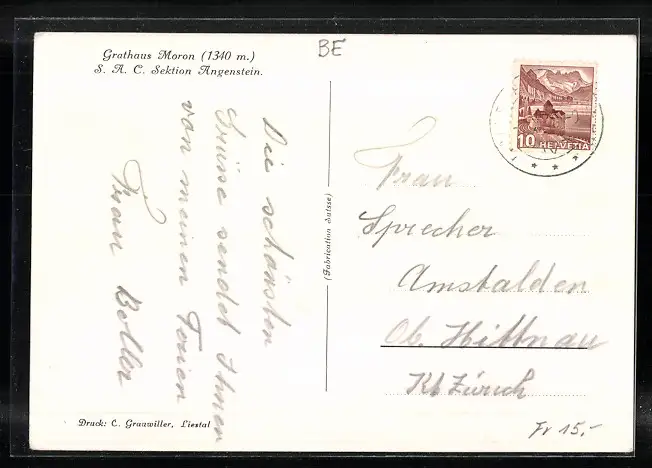 Grathaus Moron (1340 m.)
S. A. C. Sektion Angenstein.
BE
Die schönsten
Grüsse sendet Ihnen
von meinen Ferien
Frau Boller
(Fabrication Suisse)
10 HELVETIA
Frau
Sprecher
Amstalden
Ob. Hittnau
Kt. Zürich
Druck: C. Grauwiller, Liestal
Fr 15.-